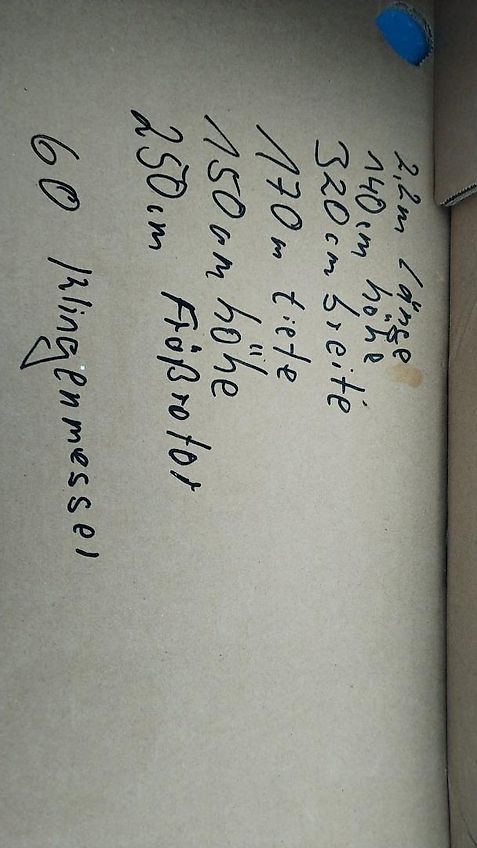 2,2m Länge
140cm höhe
320cm breite
170m tiefe
150cm höhe
250cm Fräßrotor
60 Klingenmesser